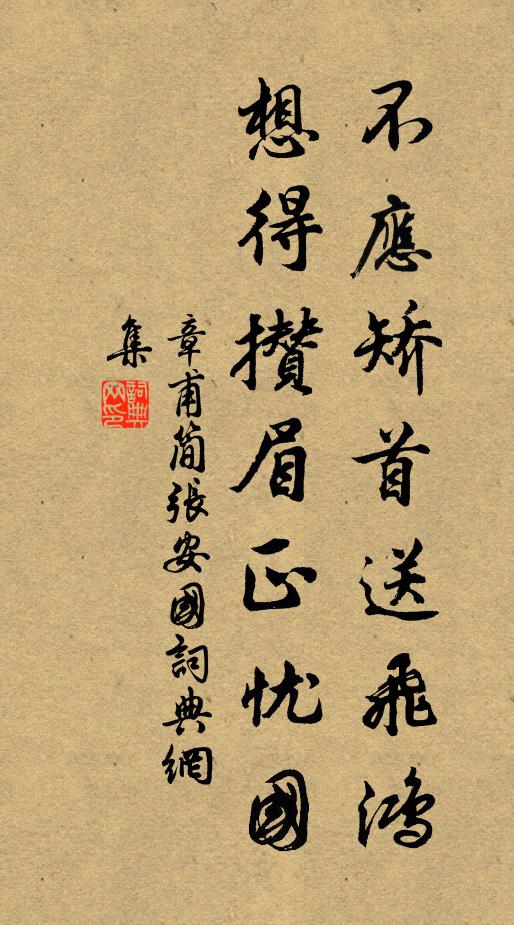 不應矯首送飛鴻
想得攢眉正忧國
章甫简張安國詞典網
集
詞典
网印